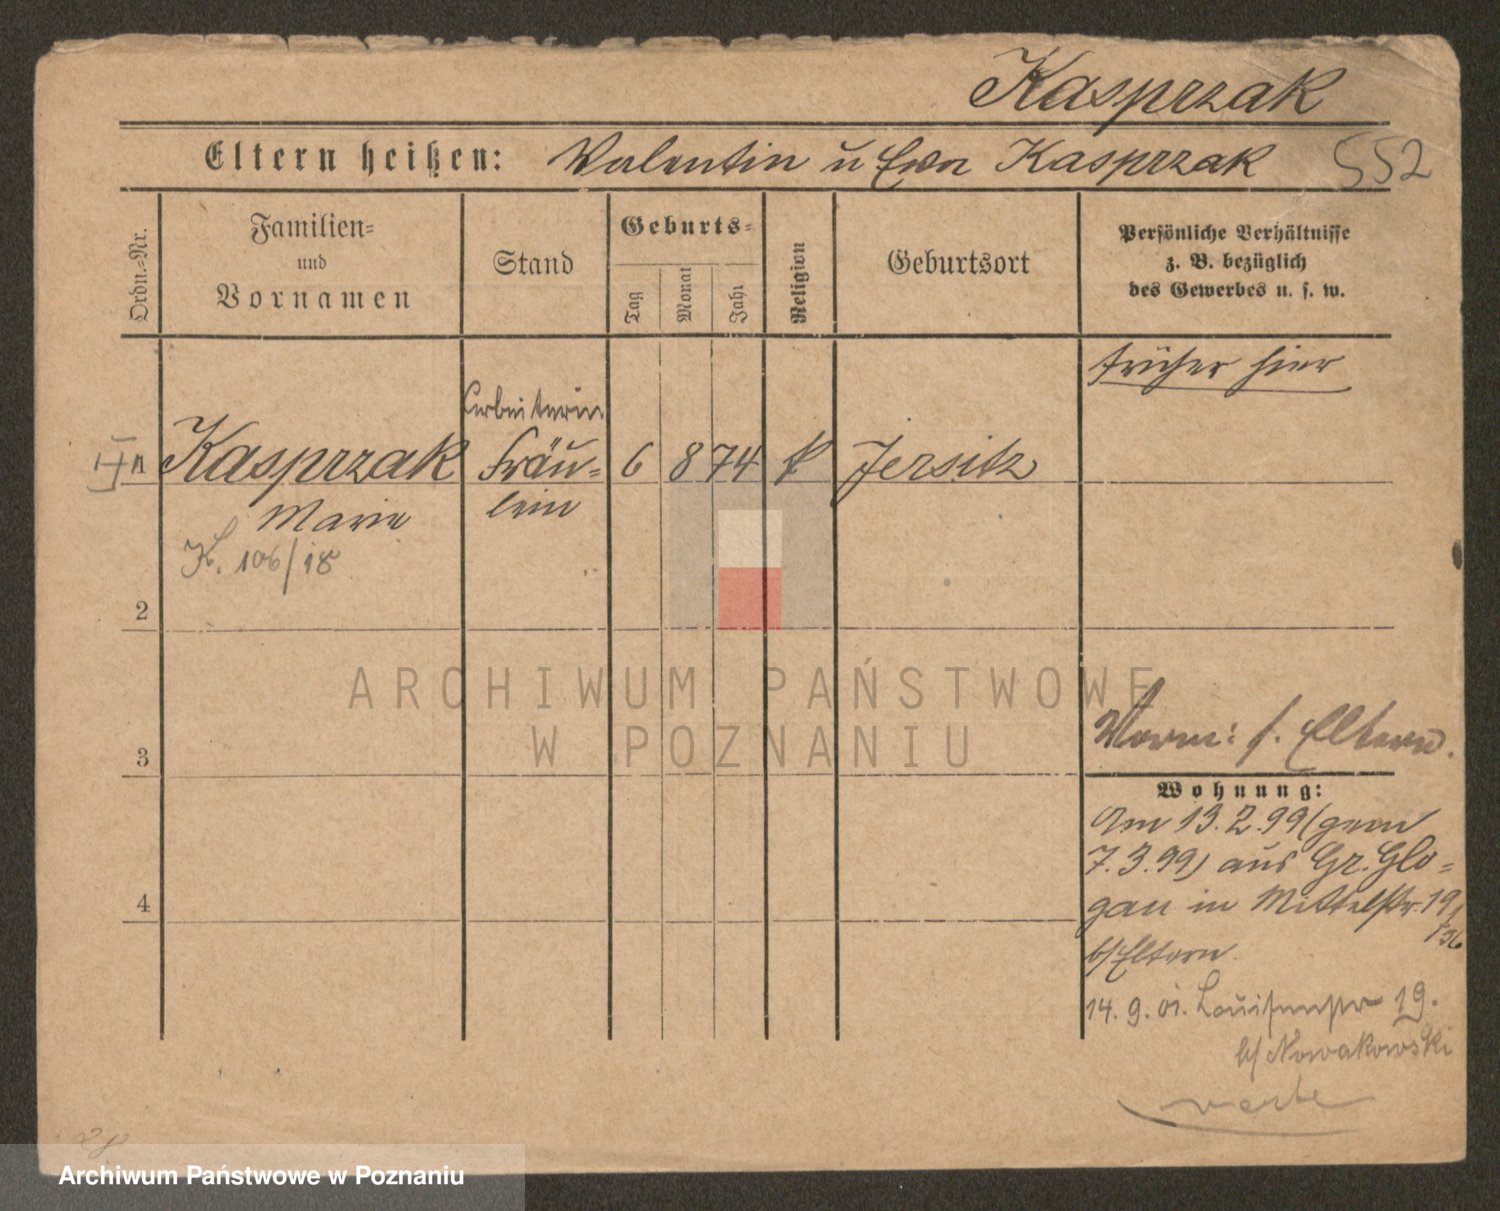 Kasprzak
Eltern heißen: Valentin u Ewa Kasprzak
552
Ordn.-Nr.
Familien-
und
Vornamen
Stand
Geburts-
Tag
Monat
Jahr
Religion
Geburtsort
Persönliche Verhältnisse
z. B. bezüglich
des Gewerbes u. s. w.
früher hier
Arbeiterin
1 Kasprzak Fräu- 6 8 74 k Jersitz
Marie lein
K. 106/18
2
ARCHIWUM PAŃSTWOWE
W POZNANIU
3
Vorm: s. Eltern.
Wohnung:
Am 13.2.99 (gem
7.3.99) aus Gr. Glo-
gau in Mittelstr. 19
4
b/Eltern
14.9.01. Louisenstr 19.
b/ Nowakowski
verte
Archiwum Państwowe w Poznaniu